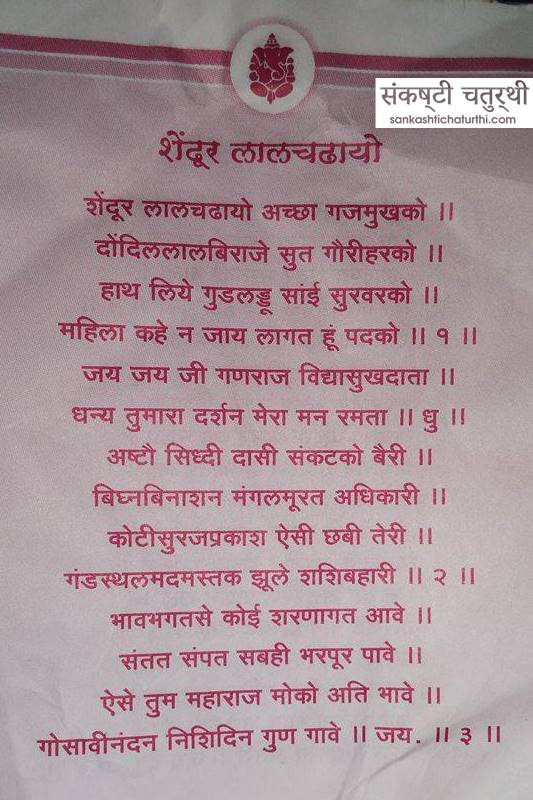 संकष्टी चतुर्थी
sankashtichaturthi.com
शेंदूर लालचढायो
शेंदूर लालचढायो अच्छा गजमुखको ।।
दोंदिललालबिराजे सुत गौरीहरको ।।
हाथ लिये गुडलड्डू सांई सुरवरको ।।
महिला कहे न जाय लागत हूं पदको ।। १ ।।
जय जय जी गणराज विद्यासुखदाता ।।
धन्य तुमारा दर्शन मेरा मन रमता ।। धु ।।
अष्टौ सिध्दी दासी संकटको बैरी ।।
बिघ्नबिनाशन मंगलमूरत अधिकारी ।।
कोटीसुरजप्रकाश ऐसी छबी तेरी ।।
गंडस्थलमदमस्तक झूले शशिबहारी ।। २ ।।
भावभगतसे कोई शरणागत आवे ।।
संतत संपत सबही भरपूर पावे ।।
ऐसे तुम महाराज मोको अति भावे ।।
गोसावीनंदन निशिदिन गुण गावे ।। जय. ।। ३ ।।